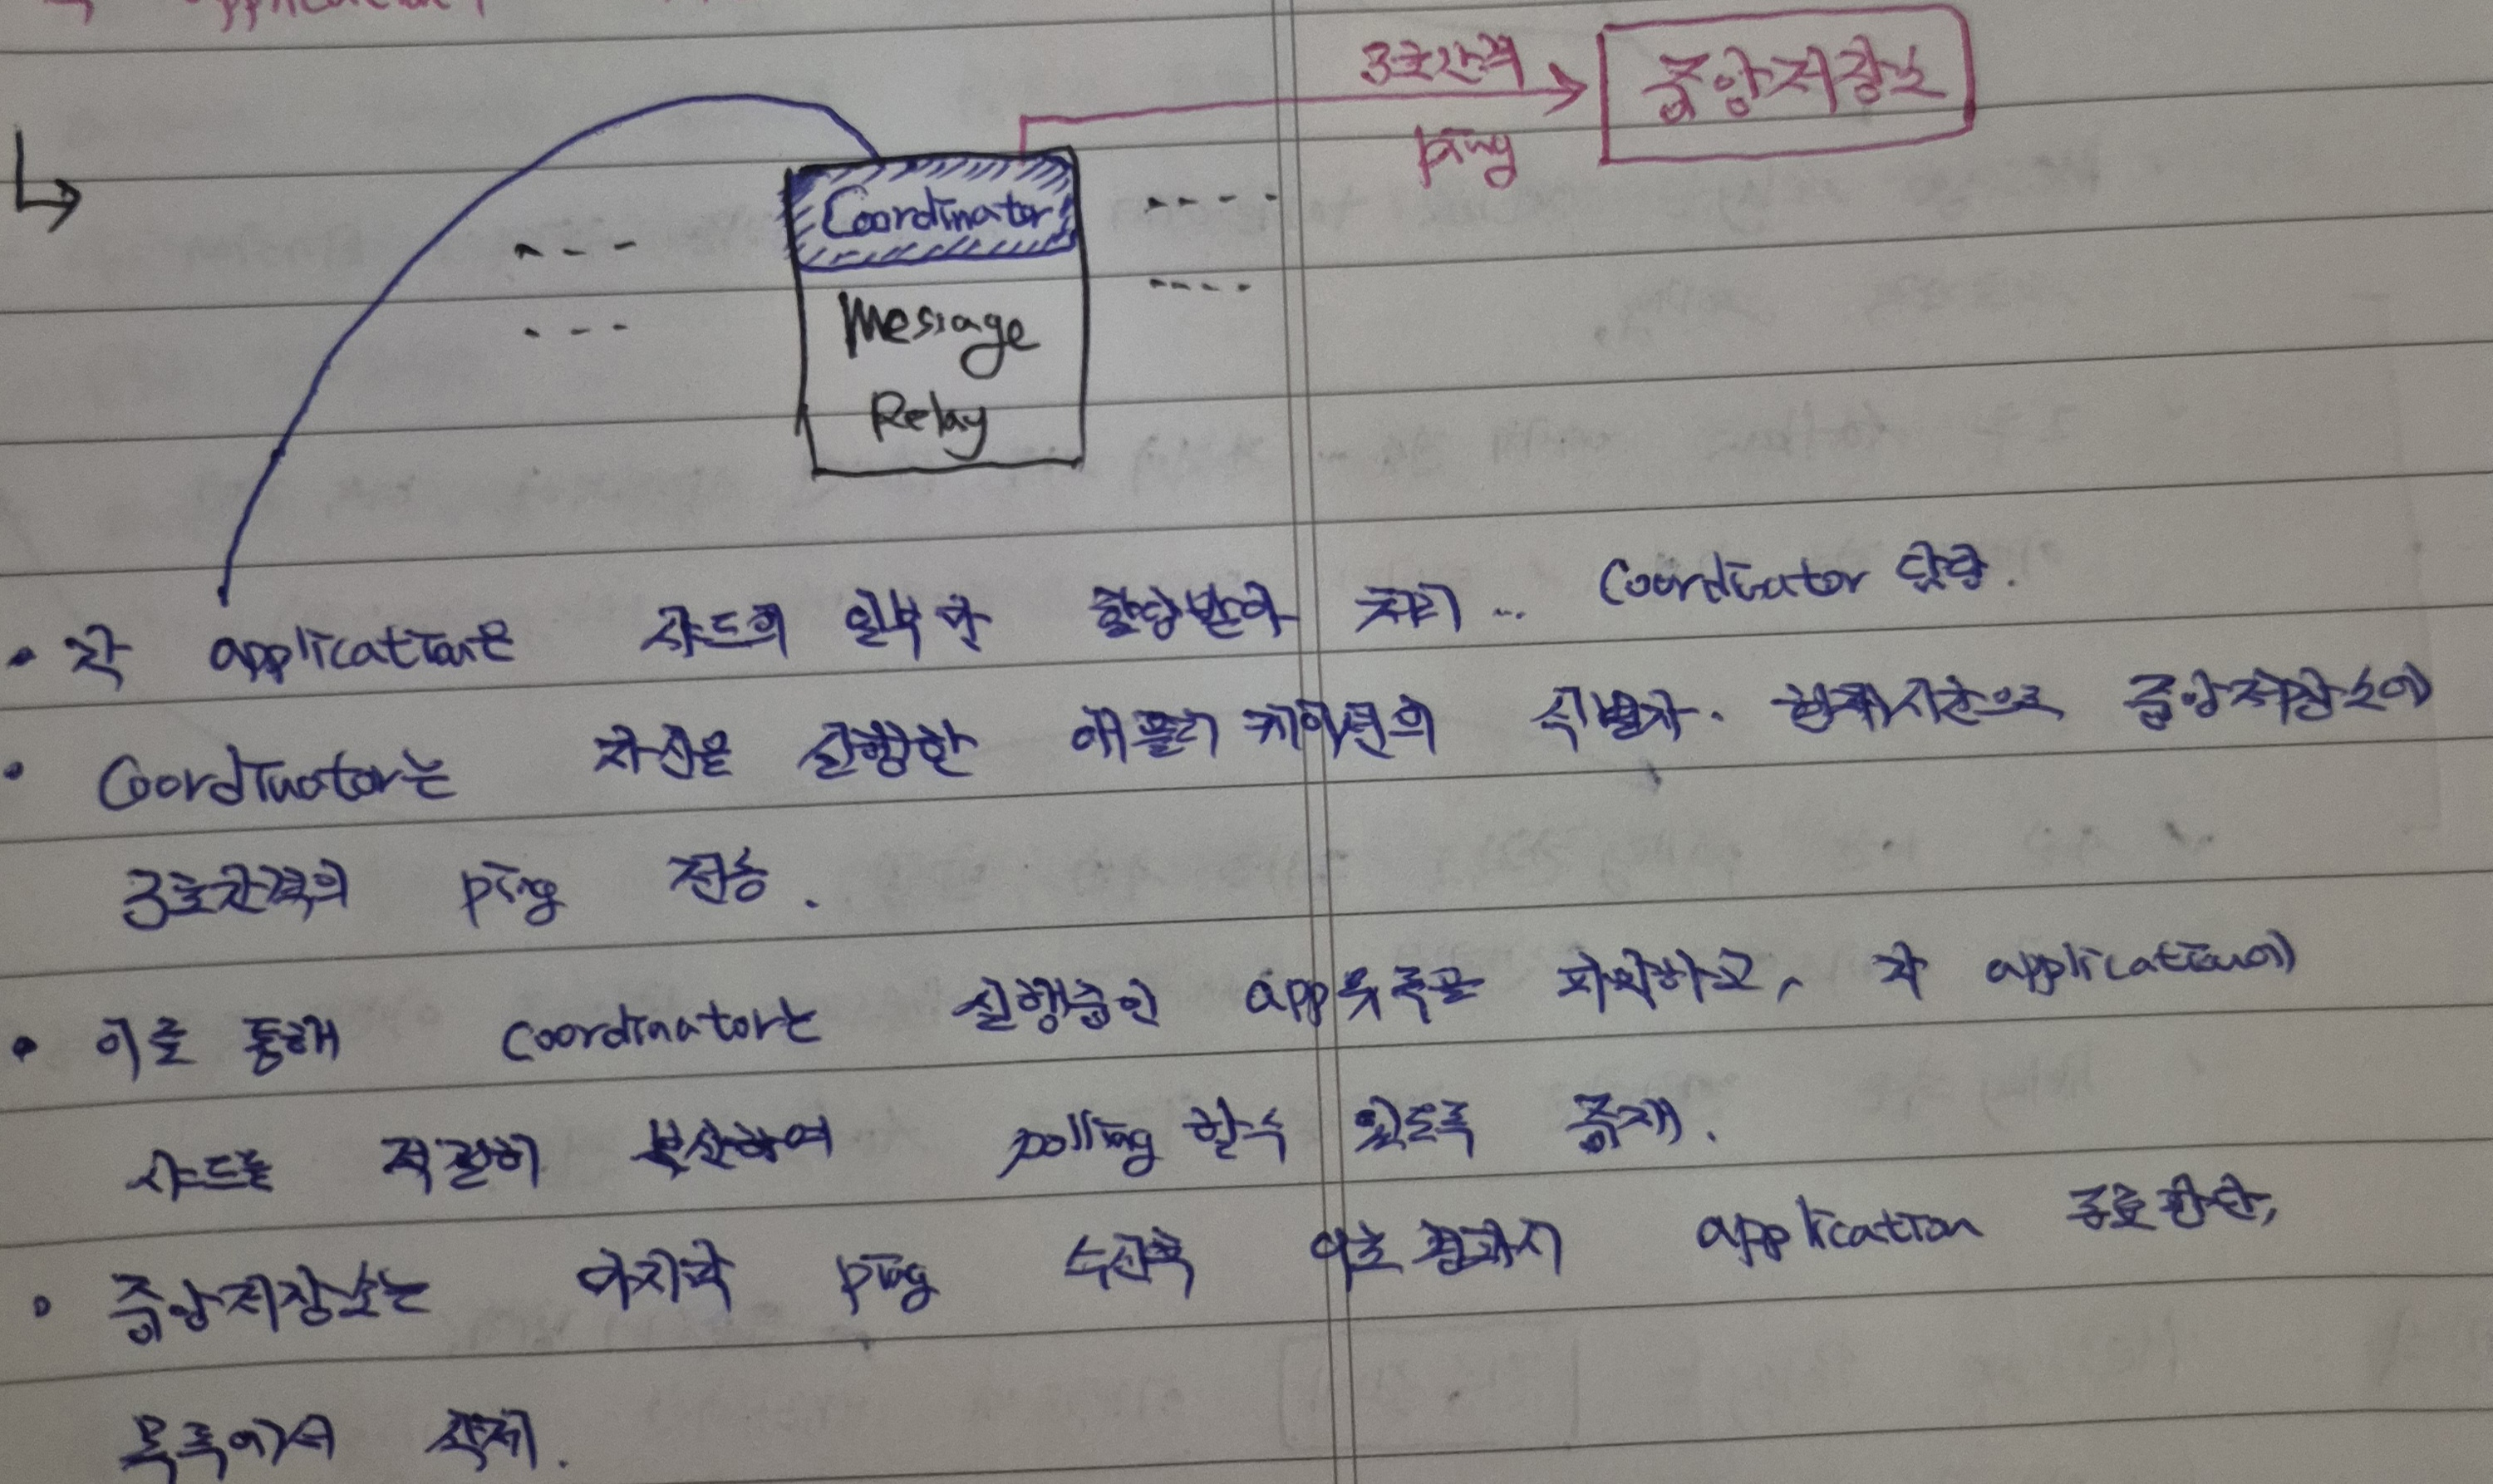 application
3초간격
중앙저장소
ping
Coordinator
Message
Relay
• 각 application은 샤드의 일부만 할당받아 처리 … Coordinator 담당.
• Coordinator는 자신을 실행한 애플리케이션의 식별자. 현재시간으로 중앙저장소에
3초간격의 ping 전송.
• 이를 통해 coordinator는 실행중인 app목록을 파악하고, 각 application에
샤드를 적절히 분산하여 polling 할수 있도록 중재.
• 중앙저장소는 마지막 ping 수신후 9초 경과시 application 종료판단,
목록에서 삭제.